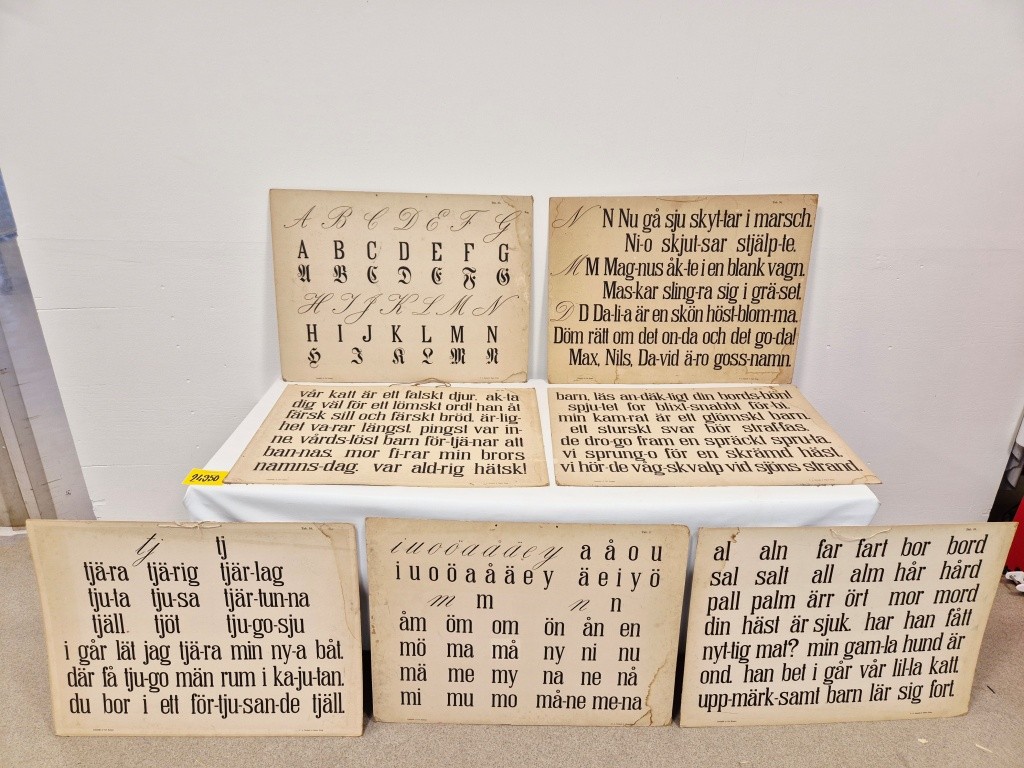 A B C D E F G
A B C D E F G
A B C D E F G
H I J K L M N
H I J K L M N
H I J K L M N
N N Nu gå sju skyt-tar i marsch.
Ni-o skjut-sar stjälp-te.
M M Mag-nus åk-te i en blank vagn.
Mas-kar sling-ra sig i grä-set.
D D Da-li-a är en skön höst-blom-ma.
Döm rätt om det on-da och det go-da!
Max, Nils, Da-vid ä-ro goss-namn.
vår katt är ett falskt djur. ak-ta
dig väl för ett lömskt ord! han åt
färsk sill och färskt bröd. är-lig-
het va-rar längst. pingst var in-
ne. vårds-löst barn för-tjä-nar att
ban-nas. mor fi-rar min brors
namns-dag. var ald-rig hätsk!
barn, läs an-däk-tigt din bords-bön!
spju-tet for blixt-snabbt för-bi.
min kam-rat är ett glömskt barn.
ett sturskt svar bör straf-fas.
de dro-go fram en spräckt spru-ta.
vi sprung-o för en skrämd häst.
vi hör-de våg-skvalp vid sjöns strand.
24350
tj tj
tjä-ra tjä-rig tjär-lag
tju-ta tju-sa tjär-tun-na
tjäll tjöt tju-go-sju
i går lät jag tjä-ra min ny-a båt.
där få tju-go män rum i ka-ju-tan.
du bor i ett för-tju-san-de tjäll.
i u o ö a å ä e y a å o u
i u o ö a å ä e y ä e i y ö
m m n n
åm öm om ön ån en
mö ma må ny ni nu
mä me my na ne nå
mi mu mo må-ne me-na
al aln far fart bor bord
sal salt all alm hår hård
pall palm ärr ört mor mord
din häst är sjuk. har han fått
nyt-tig mat? min gam-la hund är
ond. han bet i går vår lil-la katt.
upp-märk-samt barn lär sig fort.